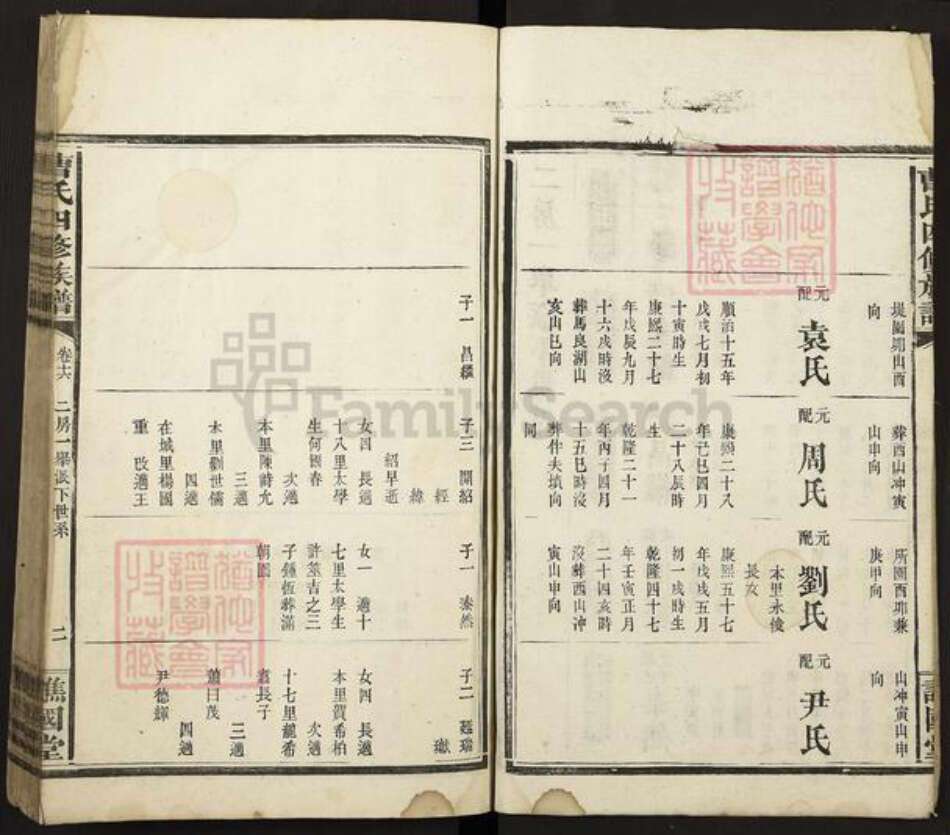 曹氏四修族譜
堤圍卯山酉
向
元配
袁氏
順治十五年
戊戌七月初
十寅時生
康熙二十七
年戊辰九月
十六戌時沒
葬馬良湖山
亥山巳向
葬西山冲寅
山申向
元配
周氏
康熙二十八
年己巳四月
二十八辰時
生
乾隆二十一
年丙子四月
十五巳時沒
葬伴夫塡向
同
所園酉卯兼
庚甲向
元配
劉氏
本里永俊
長女
康熙五十七
年戊戌五月
初一戌時生
乾隆四十七
年壬寅正月
二十四亥時
沒葬西山冲
寅山申向
山冲寅山申
向
元配
尹氏
譙國堂
子一 昌
子三 開紹
經
緯
紹早逝
女四 長適
十八里太學
生何國春
次適
本里陳時尤
三適
本里劉世儒
四適
在城里楊國
重 改適王
子一 泰然
女一 適十
七里太學生
許並吉之三
子鍾恆葬滿
朝園
子二 廷瑞
獻
女四 長適
本里賀希柏
次適
十七里龍希
袞長子
三適
蕭曰茂
四適
尹德輝
曹氏四修族譜
卷十六
二房一舉派下世系
二
譙國堂
猶他家
譜學會
收藏
猶他家
譜學會
收藏
FamilySearch